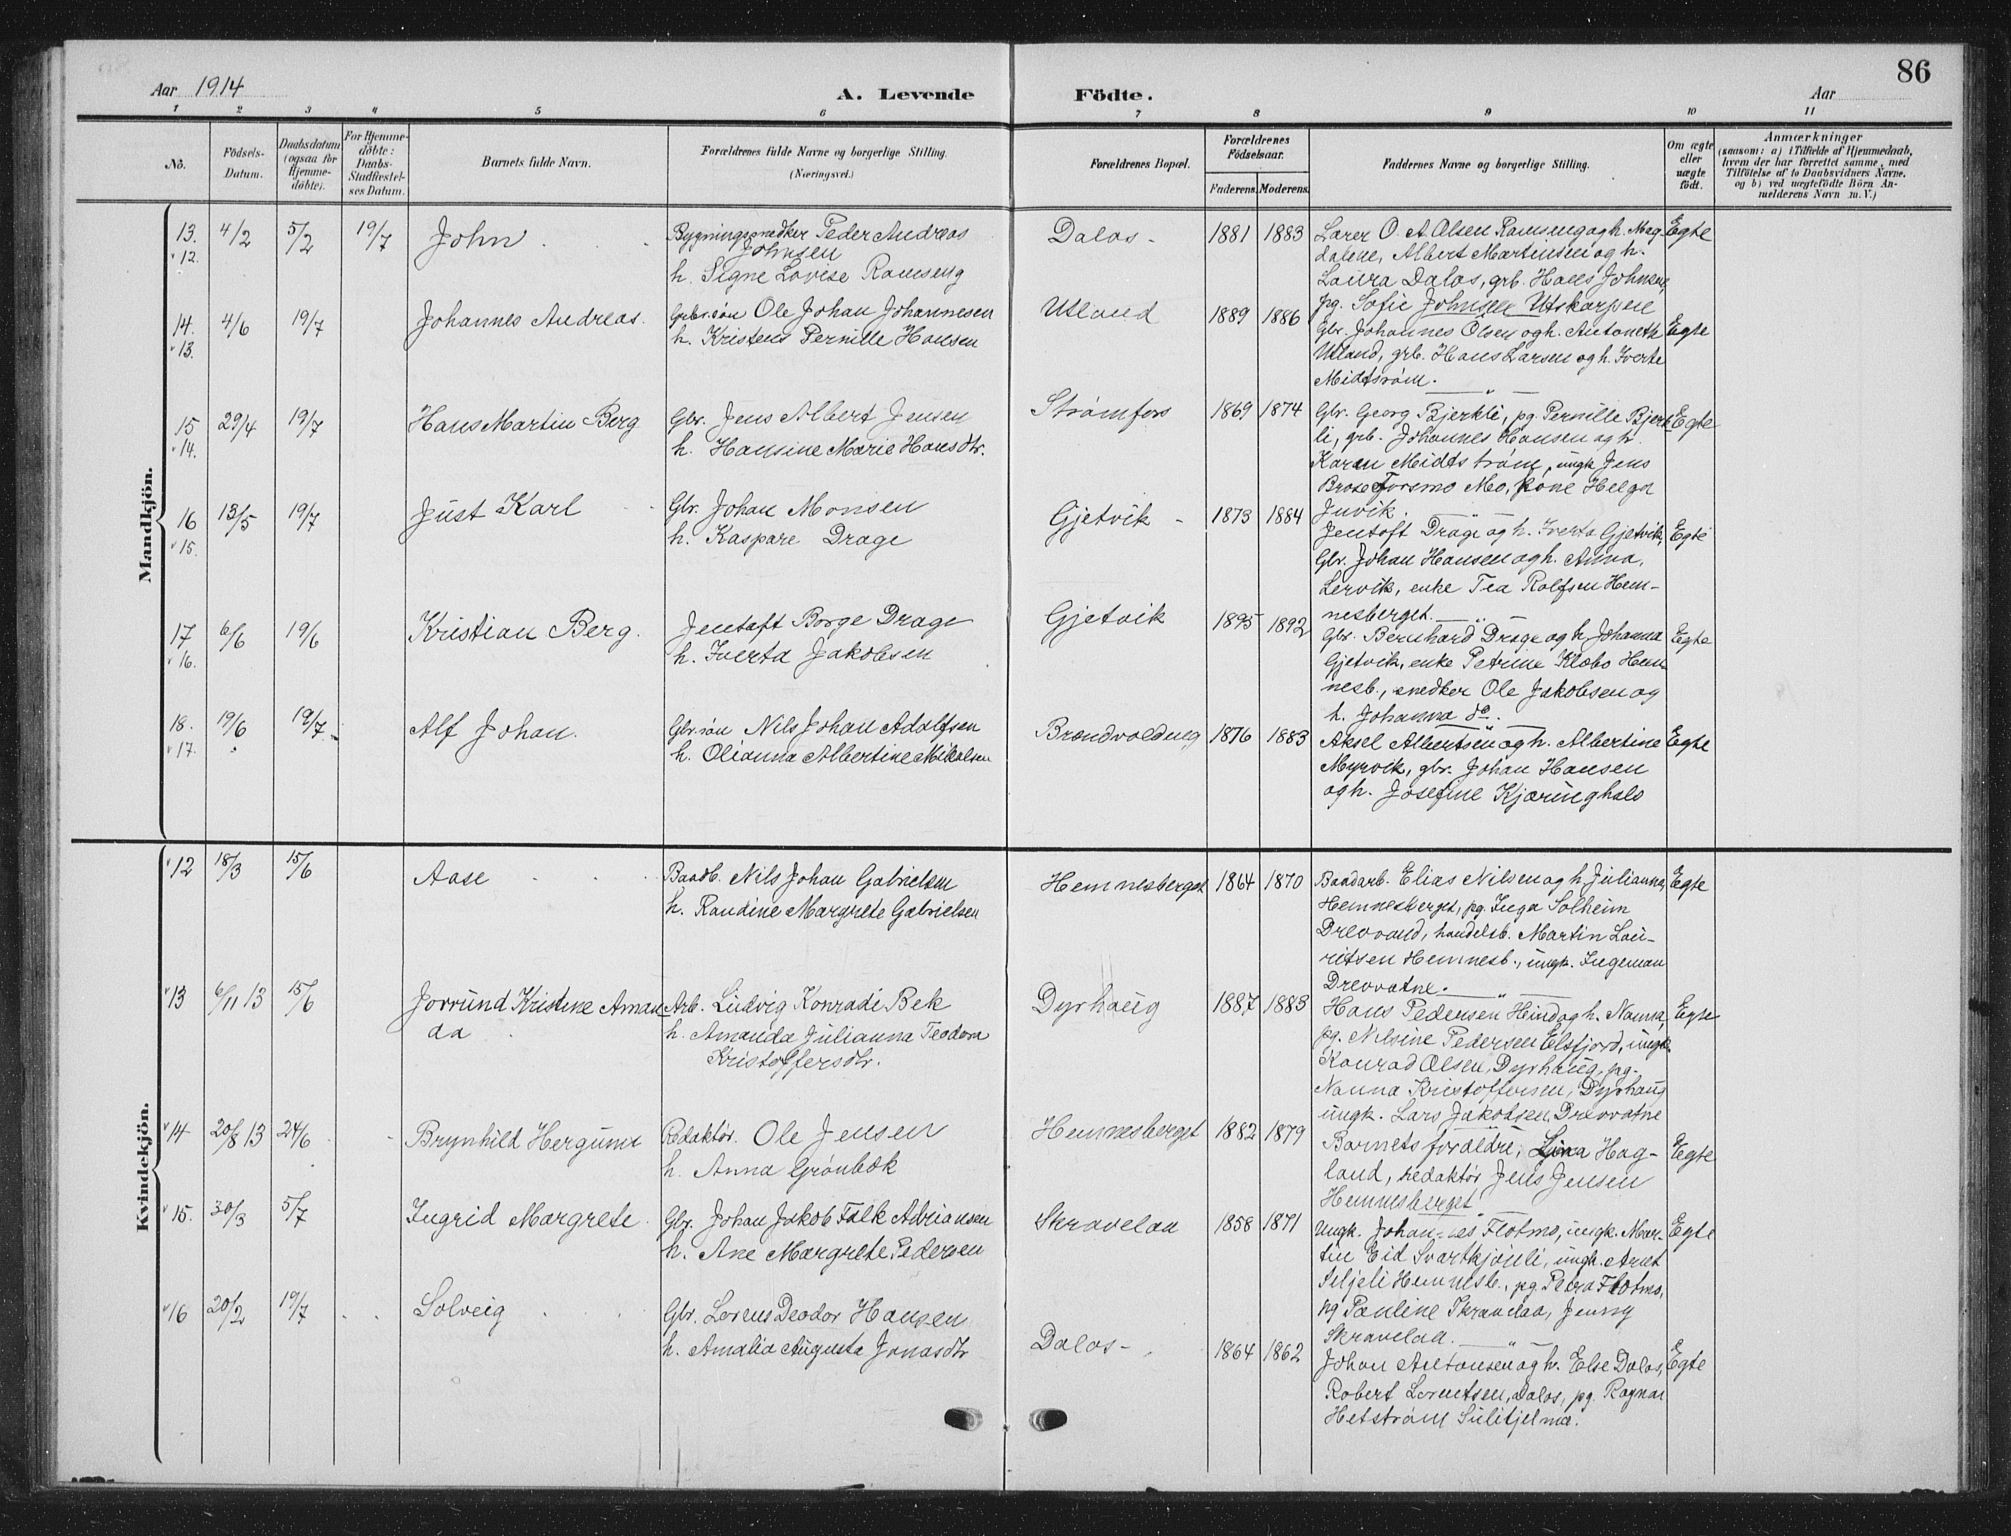 86
Aar 1914
A. Levende Födte.
Aar
1 2 3 4 5 6 7 8 9 10 11
No.
Födsels-
Datum.
Daabsdatum
(ogsaa for
Hjemme-
döbte).
For Hjemme-
döbte:
Daabs-
Stadfæstel-
ses Datum.
Barnets fulde Navn.
Forældrenes fulde Navne og borgerlige Stilling.
(Næringsvei.)
Forældrenes Bopæl.
Forældrenes
Födselsaar.
Faderens. Moderens.
Faddernes Navne og borgerlige Stilling.
Om ægte
eller
uægte
födt.
Anmærkninger
(saasom: a) i Tilfælde af Hjemmedaab,
hvem der har forrettet samme, med
Tilföielse af to Daabsvidners Navne,
og b) ved uægtefödte Börn An-
melderens Navn m. V.)
Mandkjön.
13.
v 12.
4/2 5/2 19/7
John
Bygningssnedker Peder Andreas
Johnsen
h. Signe Lovise Ramseng
Dalos -
1881 1883
Lærer O. A. Olsen Ramseng og h. Mag-
dalene, Albert Martinsen og h.
Laura Dalos, grb. Hans Johnsen
pg. Sofie Johnsen Utskarpen
Egte
14.
v 13.
4/6 19/7
Johannes Andreas.
Gbr.søn Ole Johan Johannesen
h. Kristens Pernille Hansen
Utland
1889 1886
Gbr. Johannes Olsen og h. Antonette
Utland, grb. Hans Larsen og h. Iverte
Midtstrøm.
Egte
15
v 14.
29/4 19/7
Hans Martin Berg
Gbr. Jens Albert Jensen
h. Hansine Marie Hansdtr.
Strømfors
1869 1874
Gbr. Georg Bjerkli, pg. Pernille Bjerk-
li, grb. Johannes Hansen og h.
Karen Midtstrøm, ungk. Jens
Forsmo Mo, kone Helga
Juvik.
Egte
16
v 15.
13/5 19/7
Just Karl
Gbr. Johan Monsen
h. Kaspare Drage
Gjetvik -
1873 1884
Jentoft Drage og h. Iverta Gjetvik,
Gbr. Johan Hansen og h. Anna,
Lervik, enke Tea Rolfsen Hem-
nesberget.
Egte
17
v 16.
6/6 19/6
Kristian Berg.
Jentoft Borge Drage
h. Iverta Jakobsen
Gjetvik
1895 1892
Gbr. Bernhard Drage og h. Johanna
Gjetvik, enke Petrine Klæbo Hem-
nesb., snedker Ole Jakobsen og
h. Johanna do.
Egte
18.
v 17.
19/6 19/7
Alf Johan.
Gbr.søn Nils Johan Adolfsen
h. Olianna Albertine Mikalsen
Brændvoldneg
1876 1883
Aksel Albertsen og h. Albertine
Myrvik, gbr. Johan Hansen
og h. Josefine Kjæringhals
Egte
Kvindekjön.
v 12
18/3 15/6
Aase
Baadb. Nils Johan Gabrielsen
h. Randine Margrete Gabrielsen
Hemnesberget
1864 1870
Baadarb. Elias Nilsen og h. Julianna,
Hemnesberget, pg. Inga Solheim
Drevvand, handelsb. Martin Lau-
ritsen Hemnesb., ungk. Ingeman
Drevvatne.
Egte
v 13
6/11 13 15/6
Jorrund Kristine Aman-
da
Arb. Ludvig Konradi Bek
h. Amanda Julianna Teodora
Kristoffersdtr.
Dyrhaug
1887 1883
Hans Pedersen Hind og h. Nanna,
pg. Nilsine Pedersen Elsfjord, ungk.
Konrad Olsen, Dyrhaug, pg.
Nanna Kristoffersen, Dyrhaug
ungk. Lars Jakobsen Drevvatne
Egte
v 14
20/8 13 24/6
Brynhild Hergunn
Redaktør. Ole Jensen
h. Anna Grønbæk
Hemnesberget
1882 1879
Barnets forældre, Lina Hag-
land, redaktør Jens Jensen
Hemnesberget
Egte
v 15.
30/3 5/7
Ingrid Margrete.
Gbr. Johan Jakob Falk Adriansen
h. Ane Margrete Pedersen
Skravelaa
1858 1871
Ungk. Johannes Flotmo, ungk. Mar-
tin Eid Svartkjønli, ungk. Arnt
Seljeli Hemnesb., pg. Petra Flotmo,
pg Pauline Skravlaa, Jenny
Skravelaa.
Egte
v 16
20/2 19/7
Solveig
Gbr. Lorens Deodor Hansen
h. Amalia Augusta Jonasdtr
Dalos -
1864 1862
Johan Antonsen og h. Else Dalos,
Robert Lorentsen, Dalos, pg. Ragna
Hetstrøm Sulitjelma.
Egte